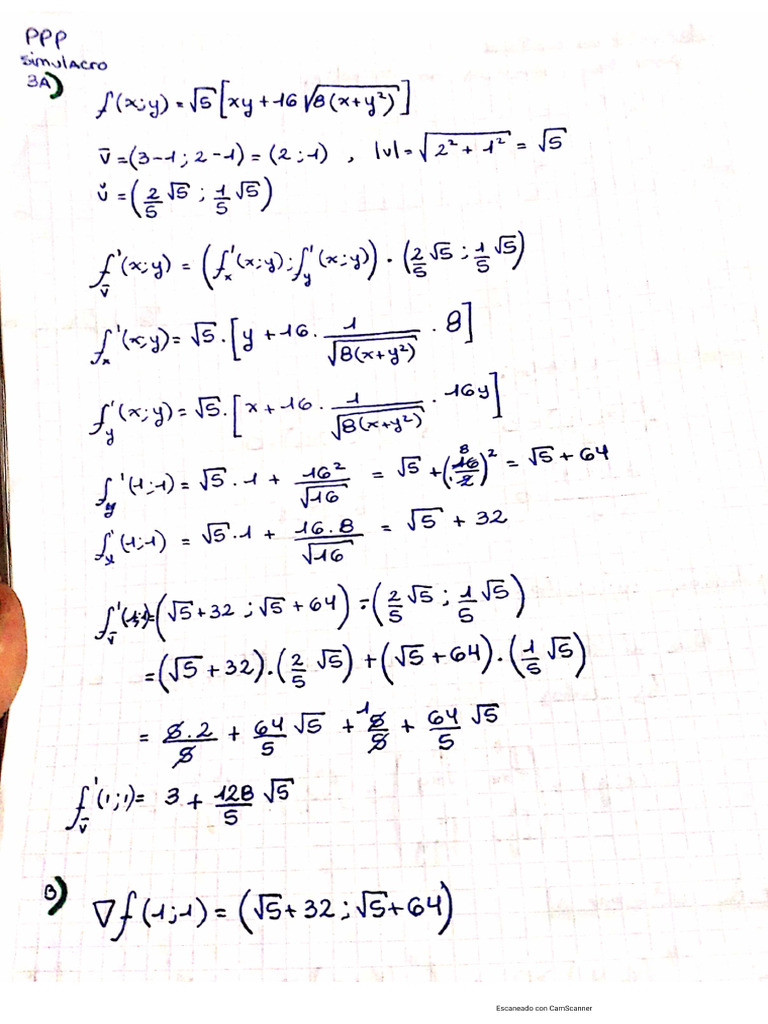 PPP
SIMULACRO
3A)
f(x;y) = √5 [xy + 16 √8(x+y²)]
v̄ = (3-1; 2-1) = (2;1) , |v| = √2² + 1² = √5
v̌ = (2/5 √5 ; 1/5 √5)
f'v̄ (x;y) = (f'x (x;y); f'y (x;y)) · (2/5 √5 ; 1/5 √5)
f'x (x;y) = √5 · [y + 16 · 1/√8(x+y²) · 8]
f'y (x;y) = √5 · [x + 16 · 1/√8(x+y²) · 16y]
f'y (1;1) = √5 · 1 + 16²/√16 = √5 + (16/2)² 8 = √5 + 64
f'x (1;1) = √5 · 1 + 16.8/√16 = √5 + 32
f'v̄ (1;1) = (√5 + 32 ; √5 + 64) = (2/5 √5 ; 1/5 √5)
= (√5 + 32) · (2/5 √5) + (√5 + 64) · (1/5 √5)
= 5.2/5 + 64/5 √5 + 1 5/5 + 64/5 √5
f'v̄ (1;1) = 3 + 128/5 √5
B)
∇f(1;1) = (√5 + 32 ; √5 + 64)
Escaneado con CamScanner